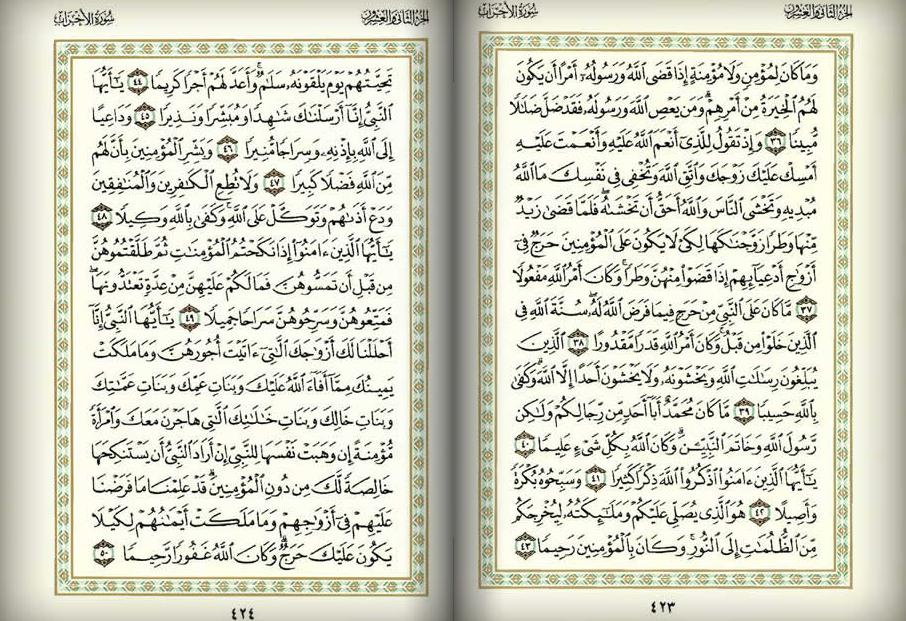 الجزء الثاني والعشرون
سورة الأحزاب
وَمَا كَانَ لِمُؤْمِنٍ وَلَا مُؤْمِنَةٍ إِذَا قَضَى ٱللَّهُ وَرَسُولُهُۥٓ أَمْرًا أَن يَكُونَ
لَهُمُ ٱلْخِيَرَةُ مِنْ أَمْرِهِمْ ۗ وَمَن يَعْصِ ٱللَّهَ وَرَسُولَهُۥ فَقَدْ ضَلَّ ضَلَٰلًا
مُّبِينًا ٣٦ وَإِذْ تَقُولُ لِلَّذِىٓ أَنْعَمَ ٱللَّهُ عَلَيْهِ وَأَنْعَمْتَ عَلَيْهِ
أَمْسِكْ عَلَيْكَ زَوْجَكَ وَٱتَّقِ ٱللَّهَ وَتُخْفِى فِى نَفْسِكَ مَا ٱللَّهُ
مُبْدِيهِ وَتَخْشَى ٱلنَّاسَ وَٱللَّهُ أَحَقُّ أَن تَخْشَىٰهُ ۖ فَلَمَّا قَضَىٰ زَيْدٌ
مِّنْهَا وَطَرًا زَوَّجْنَٰكَهَا لِكَىْ لَا يَكُونَ عَلَى ٱلْمُؤْمِنِينَ حَرَجٌ فِىٓ
أَزْوَٰجِ أَدْعِيَآئِهِمْ إِذَا قَضَوْا۟ مِنْهُنَّ وَطَرًا ۚ وَكَانَ أَمْرُ ٱللَّهِ مَفْعُولًا
٣٧ مَّا كَانَ عَلَى ٱلنَّبِىِّ مِنْ حَرَجٍ فِيمَا فَرَضَ ٱللَّهُ لَهُۥ ۖ سُنَّةَ ٱللَّهِ فِى
ٱلَّذِينَ خَلَوْا۟ مِن قَبْلُ ۚ وَكَانَ أَمْرُ ٱللَّهِ قَدَرًا مَّقْدُورًا ٣٨ ٱلَّذِينَ
يُبَلِّغُونَ رِسَٰلَٰتِ ٱللَّهِ وَيَخْشَوْنَهُۥ وَلَا يَخْشَوْنَ أَحَدًا إِلَّا ٱللَّهَ ۗ وَكَفَىٰ
بِٱللَّهِ حَسِيبًا ٣٩ مَّا كَانَ مُحَمَّدٌ أَبَآ أَحَدٍ مِّن رِّجَالِكُمْ وَلَٰكِن
رَّسُولَ ٱللَّهِ وَخَاتَمَ ٱلنَّبِيِّۦنَ ۗ وَكَانَ ٱللَّهُ بِكُلِّ شَىْءٍ عَلِيمًا ٤٠
يَٰٓأَيُّهَا ٱلَّذِينَ ءَامَنُوا۟ ٱذْكُرُوا۟ ٱللَّهَ ذِكْرًا كَثِيرًا ٤١ وَسَبِّحُوهُ بُكْرَةً
وَأَصِيلًا ٤٢ هُوَ ٱلَّذِى يُصَلِّى عَلَيْكُمْ وَمَلَٰٓئِكَتُهُۥ لِيُخْرِجَكُم
مِّنَ ٱلظُّلُمَٰتِ إِلَى ٱلنُّورِ ۚ وَكَانَ بِٱلْمُؤْمِنِينَ رَحِيمًا ٤٣
٤٢٣
الجزء الثاني والعشرون
سورة الأحزاب
تَحِيَّتُهُمْ يَوْمَ يَلْقَوْنَهُۥ سَلَٰمٌ ۚ وَأَعَدَّ لَهُمْ أَجْرًا كَرِيمًا ٤٤ يَٰٓأَيُّهَا
ٱلنَّبِىُّ إِنَّآ أَرْسَلْنَٰكَ شَٰهِدًا وَمُبَشِّرًا وَنَذِيرًا ٤٥ وَدَاعِيًا
إِلَى ٱللَّهِ بِإِذْنِهِۦ وَسِرَاجًا مُّنِيرًا ٤٦ وَبَشِّرِ ٱلْمُؤْمِنِينَ بِأَنَّ لَهُم
مِّنَ ٱللَّهِ فَضْلًا كَبِيرًا ٤٧ وَلَا تُطِعِ ٱلْكَٰفِرِينَ وَٱلْمُنَٰفِقِينَ
وَدَعْ أَذَىٰهُمْ وَتَوَكَّلْ عَلَى ٱللَّهِ ۚ وَكَفَىٰ بِٱللَّهِ وَكِيلًا ٤٨
يَٰٓأَيُّهَا ٱلَّذِينَ ءَامَنُوٓا۟ إِذَا نَكَحْتُمُ ٱلْمُؤْمِنَٰتِ ثُمَّ طَلَّقْتُمُوهُنَّ
مِن قَبْلِ أَن تَمَسُّوهُنَّ فَمَا لَكُمْ عَلَيْهِنَّ مِنْ عِدَّةٍ تَعْتَدُّونَهَا ۖ
فَمَتِّعُوهُنَّ وَسَرِّحُوهُنَّ سَرَاحًا جَمِيلًا ٤٩ يَٰٓأَيُّهَا ٱلنَّبِىُّ إِنَّآ
أَحْلَلْنَا لَكَ أَزْوَٰجَكَ ٱلَّٰتِىٓ ءَاتَيْتَ أُجُورَهُنَّ وَمَا مَلَكَتْ
يَمِينُكَ مِمَّآ أَفَآءَ ٱللَّهُ عَلَيْكَ وَبَنَاتِ عَمِّكَ وَبَنَاتِ عَمَّٰتِكَ
وَبَنَاتِ خَالِكَ وَبَنَاتِ خَٰلَٰتِكَ ٱلَّٰتِى هَاجَرْنَ مَعَكَ وَٱمْرَأَةً
مُّؤْمِنَةً إِن وَهَبَتْ نَفْسَهَا لِلنَّبِىِّ إِنْ أَرَادَ ٱلنَّبِىُّ أَن يَسْتَنكِحَهَا
خَالِصَةً لَّكَ مِن دُونِ ٱلْمُؤْمِنِينَ ۗ قَدْ عَلِمْنَا مَا فَرَضْنَا
عَلَيْهِمْ فِىٓ أَزْوَٰجِهِمْ وَمَا مَلَكَتْ أَيْمَٰنُهُمْ لِكَيْلَا
يَكُونَ عَلَيْكَ حَرَجٌ ۗ وَكَانَ ٱللَّهُ غَفُورًا رَّحِيمًا ٥٠
٤٢٤